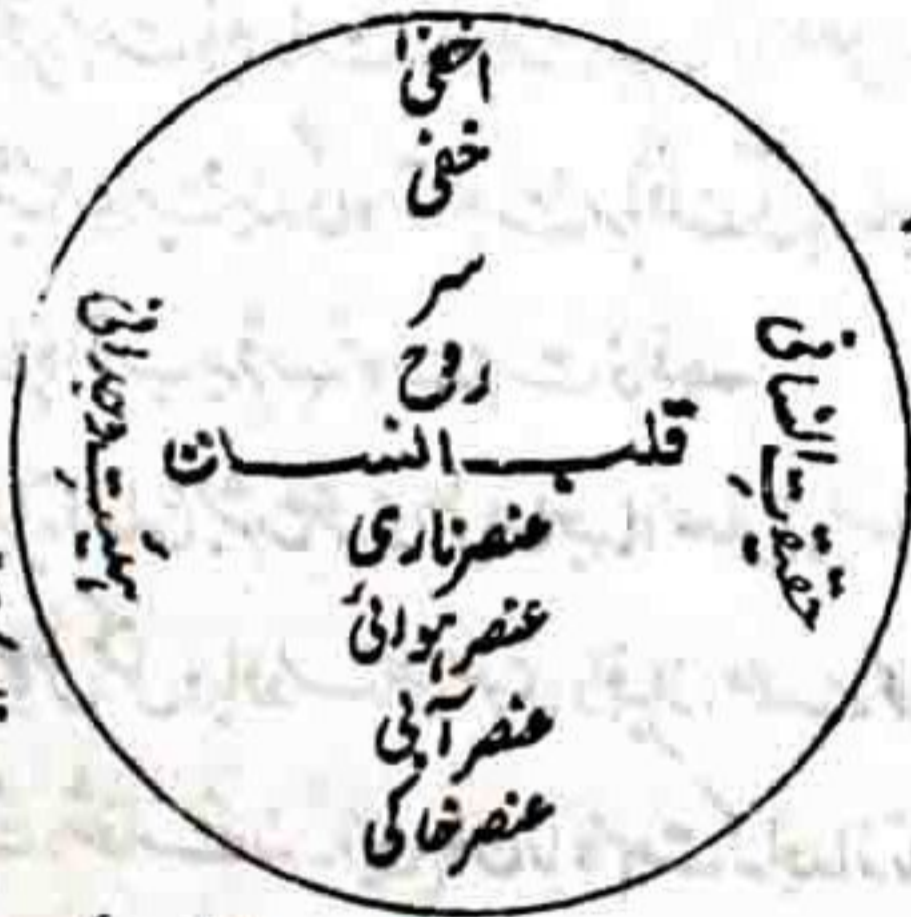 اخفیٰ
خفی
سر
روح
قلب انسان
عنصر ناری
عنصر ہوائی
عنصر آبی
عنصر خاکی
حقیقتِ انسانی